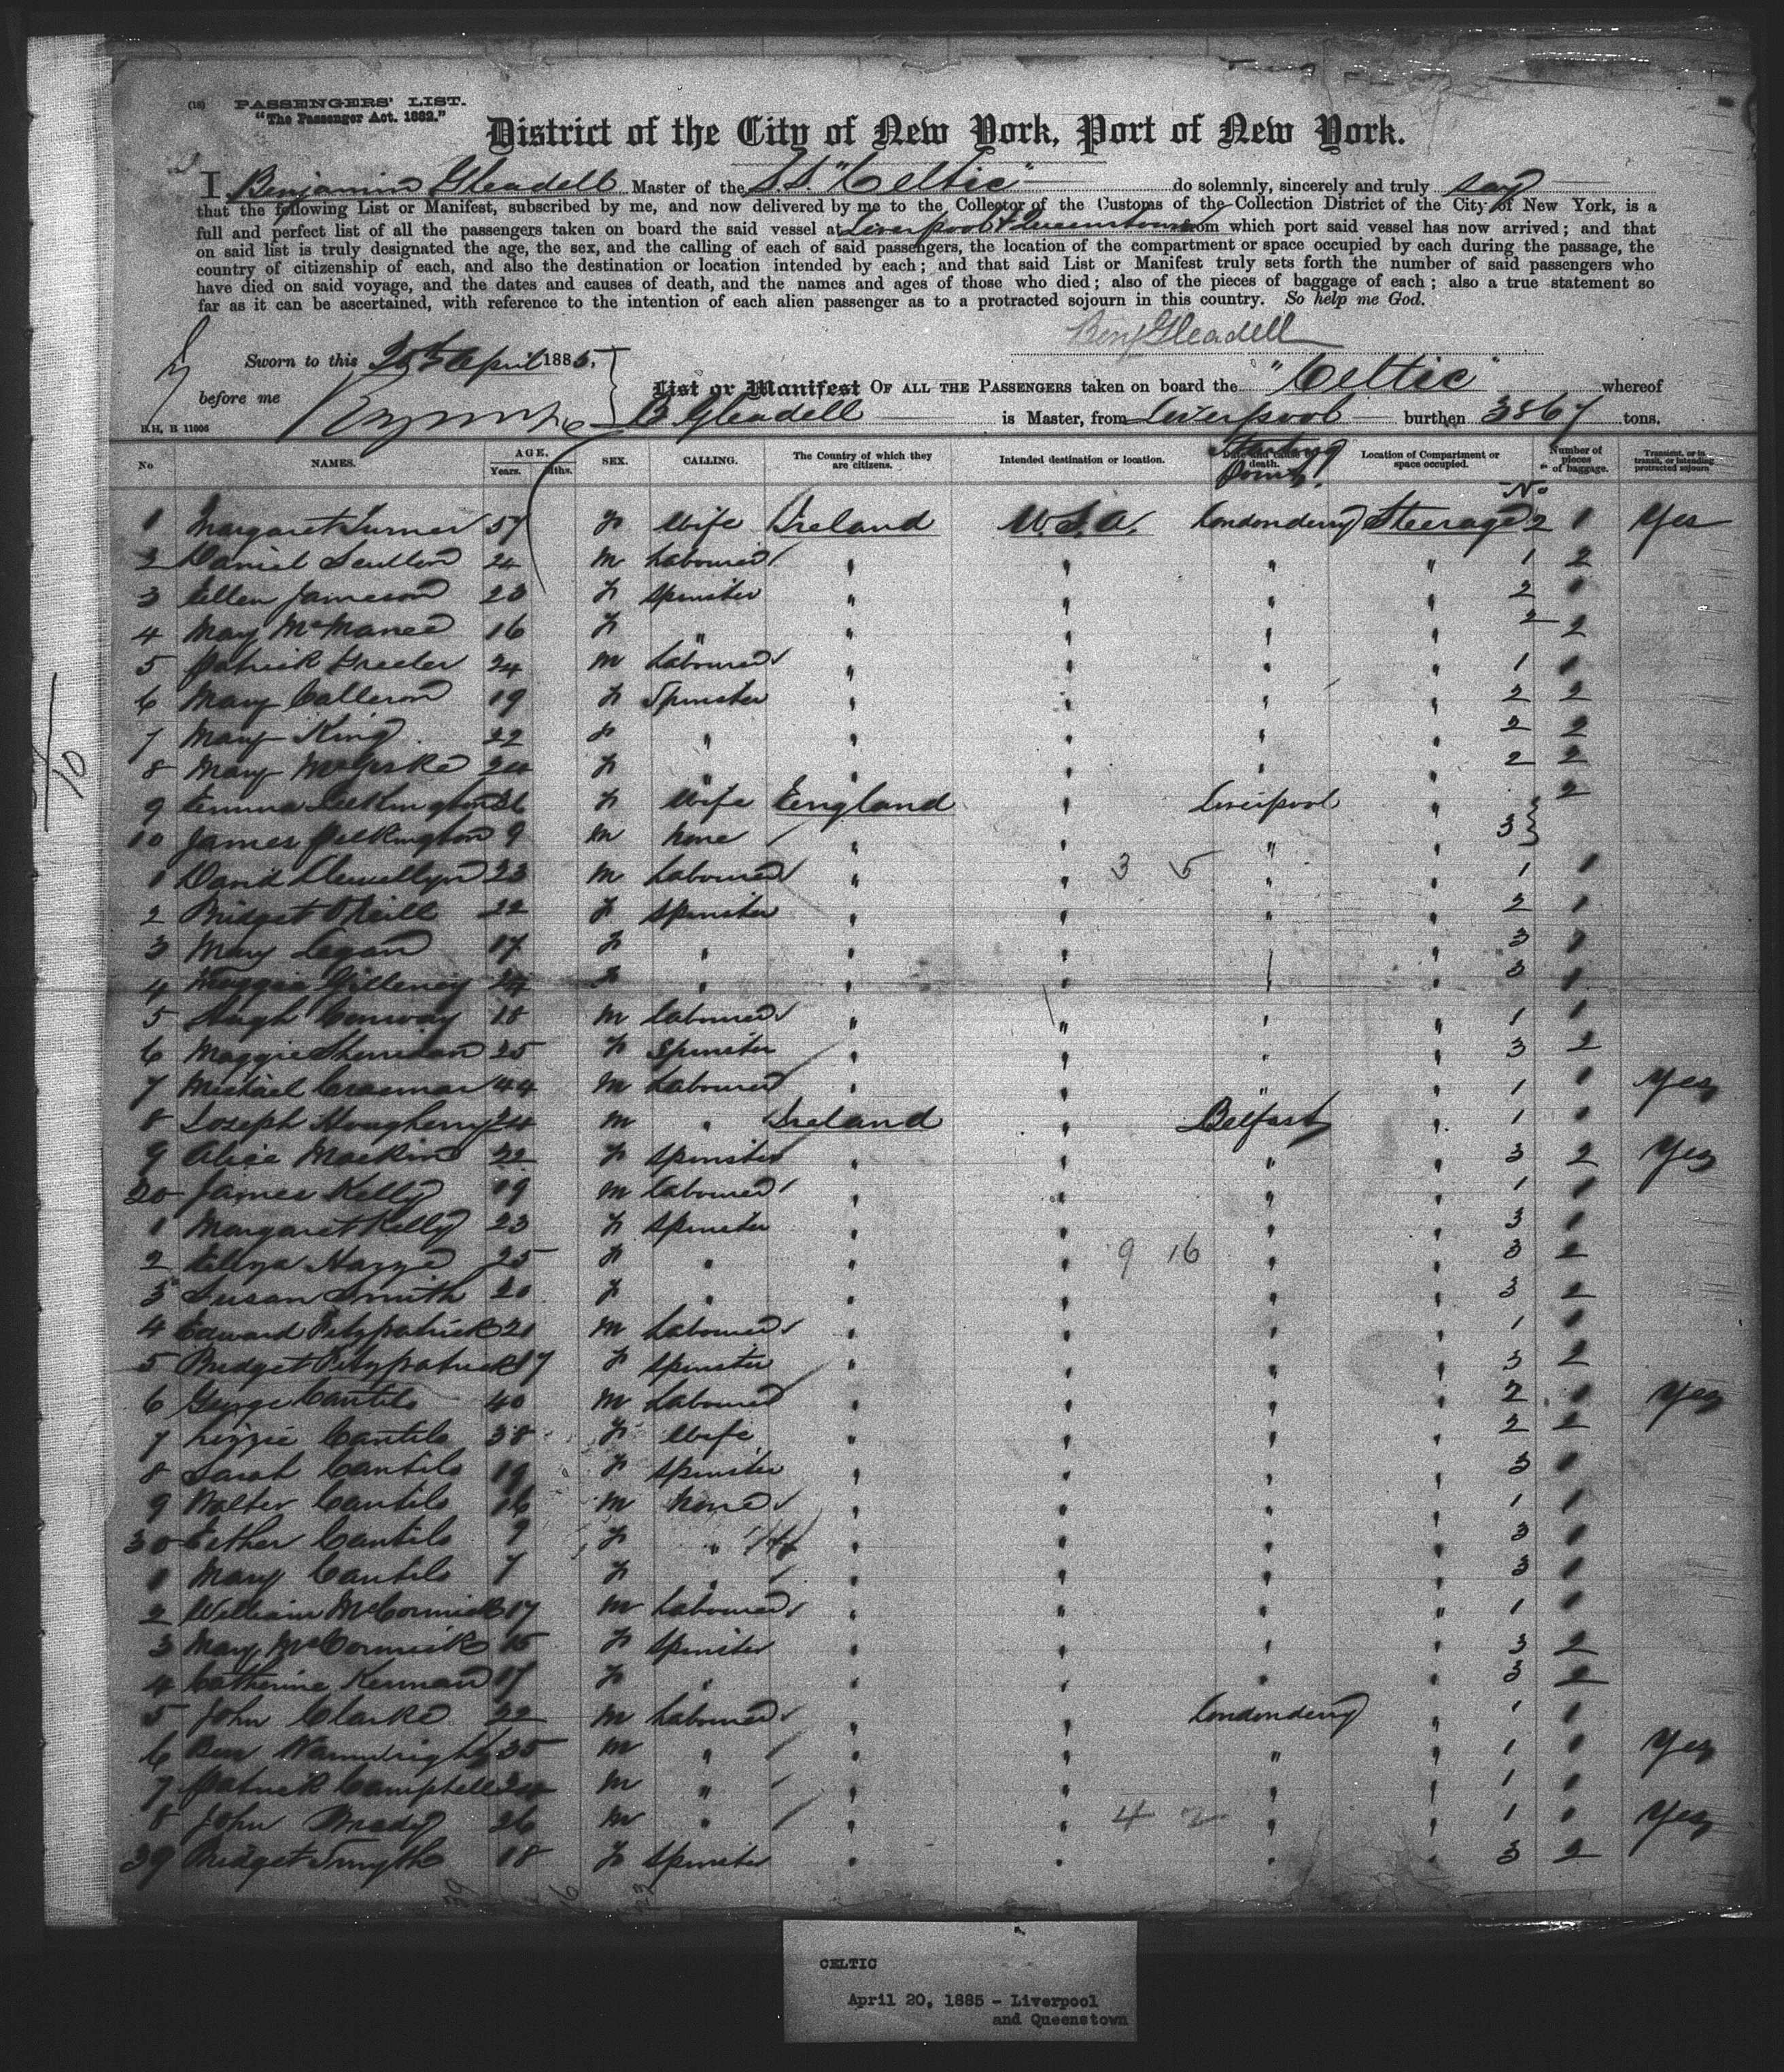 (18) PASSENGERS' LIST.
"The Passenger Act. 1882."
District of the City of New York, Port of New York.
I Benjamin Gleadell Master of the S.S. "Celtic" do solemnly, sincerely and truly say
that the following List or Manifest, subscribed by me, and now delivered by me to the Collector of the Customs of the Collection District of the City of New York, is a
full and perfect list of all the passengers taken on board the said vessel at Liverpool & Queenstown from which port said vessel has now arrived; and that
on said list is truly designated the age, the sex, and the calling of each of said passengers, the location of the compartment or space occupied by each during the passage, the
country of citizenship of each, and also the destination or location intended by each; and that said List or Manifest truly sets forth the number of said passengers who
have died on said voyage, and the dates and causes of death, and the names and ages of those who died; also of the pieces of baggage of each; also a true statement so
far as it can be ascertained, with reference to the intention of each alien passenger as to a protracted sojourn in this country. So help me God.
Benj Gleadell
Sworn to this 20th April 1885.
before me
List or Manifest OF ALL THE PASSENGERS taken on board the "Celtic" whereof
B Gleadell is Master, from Liverpool burthen 3867 tons.
B.H, B 11006
No NAMES. AGE. Years. Mths. SEX. CALLING. The Country of which they are citizens. Intended destination or location. Starting Point. Location of Compartment or space occupied. Number of pieces of baggage. Transient, or in transit, or intending protracted sojourn
No
1 Margaret Turner 57 F Wife Ireland U.S.A. Londonderry Steerage 2 1 Yes
2 Daniel Scullion 24 M Labourer " " " " 1 2
3 Ellen Jameson 23 F Spinster " " " " 2 1
4 Mary McManee 16 F " " " " " 2 2
5 Patrick 24 M Labourer " " " " 1 1
6 Mary 19 F Spinster " " " " 2 2
7 Mary King 22 F " " " " " 2 2
8 Mary 24 F " " " " " 2 2
9 Emma Pilkington 36 F Wife England " Liverpool " 2
10 James Pilkington 9 M None " " " " 3
1 David Llewellyn 23 M Labourer " " 3 5 " " 1 1
2 Bridget O'Neill 22 F Spinster " " " " 2 1
3 Mary Logan 17 F " " " " 3 1
4 Maggie Gilleney 24 F " " " " 3 1
5 Hugh Conway 18 M Labourer " " " " 1 1
6 Maggie Sheridan 25 F Spinster " " " " 3 2
7 Michael 44 M Labourer " " " " 1 1 Yes
8 Joseph 24 M " Ireland " Belfast " 1 1
9 Alice Mackin 22 F Spinster " " " " 3 2 Yes
20 James Kelly 19 M Labourer " " " " 1 1
1 Margaret Kelly 23 F Spinster " " " " 3 1
2 Eliza 25 F " " " 9 16 " " 3 2
3 Susan Smith 20 F " " " " " 3 2
4 Edward Fitzpatrick 21 M Labourer " " " " 1 1
5 Bridget Fitzpatrick 17 F Spinster " " " " 3 2
6 George Cantilo 40 M Labourer " " " " 2 1 Yes
7 Lizzie Cantilo 38 F Wife " " " " 2 2
8 Sarah Cantilo 19 F Spinster " " " " 3 1
9 Walter Cantilo 16 M None " " " " 1 1
30 Esther Cantilo 9 F " " " " " 3 1
1 Mary Cantilo 7 F " " " " " 3 1
2 William McCormick 17 M Labourer " " " " 1 1
3 Mary McCormick 15 F Spinster " " " " 3 2
4 Catherine Kernan 17 F " " " " " 3 2
5 John Clarke 22 M Labourer " " Londonderry " 1 1
6 Ben Wainwright 35 M " " " " " 1 1 Yes
7 Patrick Campbell 24 M " " " " " 1 1
8 John Brady 26 M " " " 4 2 " " 1 1 Yes
39 Bridget Smyth 18 F Spinster " " " " 3 2
CELTIC
April 20, 1885 - Liverpool
and Queenstown